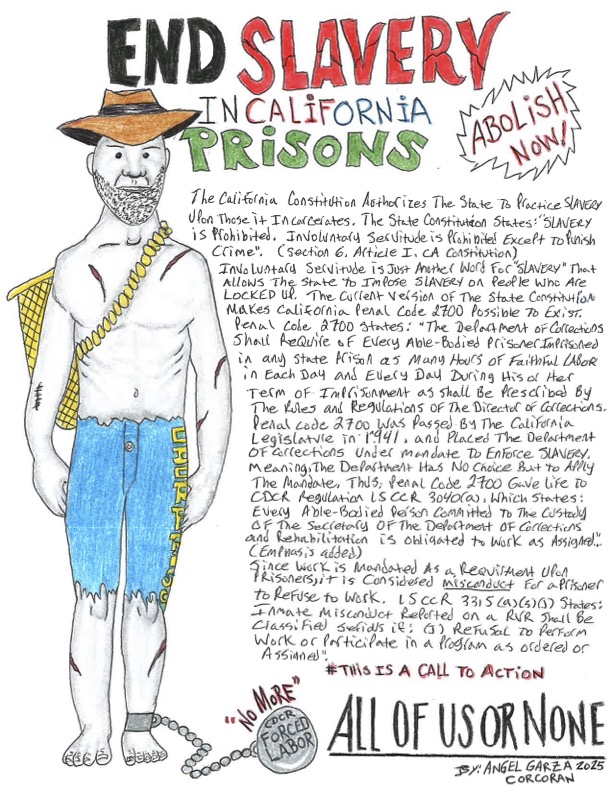 END SLAVERY
IN CALIFORNIA
PRISONS
ABOLISH
NOW!
The California Constitution Authorizes The State To Practice SLAVERY
Upon Those it Incarcerates. The State Constitution States: "SLAVERY
is Prohibited. Involuntary Servitude is Prohibited Except To Punish
Crime". (Section 6, Article I, CA Constitution)
Involuntary Servitude is Just Another Word For "SLAVERY" That
Allows The State to Impose SLAVERY on People Who Are
LOCKED UP. The Current Version of The State Constitution
Makes California Penal Code 2700 Possible To Exist.
Penal Code 2700 States: "The Department of Corrections
Shall Require of Every Able-Bodied Prisoner Imprisoned
in any State Prison as Many Hours of Faithful LABOR
in Each Day and Every Day During His or Her
Term of Imprisonment as shall Be Prescribed By
The Rules and Regulations of The Director of Corrections.
Penal Code 2700 Was Passed By The California
Legislature in 1941, and Placed The Department
Of Corrections Under mandate To Enforce SLAVERY,
Meaning, The Department Has No Choice But to Apply
The Mandate, Thus, Penal Code 2700 Gave life To
CDCR Regulation 15 CCR 3040(a), Which States:
Every Able-Bodied Person Committed To The Custody
Of The Secretary Of The Department Of Corrections
and Rehabilitation is Obligated to Work as Assigned".
(Emphasis added)
Since Work is Mandated As a Requirtment Upon
Prisoners, it is Considered misconduct For a Prisoner
to Refuse to Work. 15 CCR 3315 (a)(3)(J) States:
Inmate Misconduct Reported on a RVR Shall Be
Classified serious if: (J) Refusal to Perform
Work or Participate in a Program as ordered or
Assigned"
#THIS IS A CALL TO ACTION
"NO MORE"
CDCR
FORCED
LABOR
ALL OF US OR NONE
BY: ANGEL GARZA 2025
CORCORAN